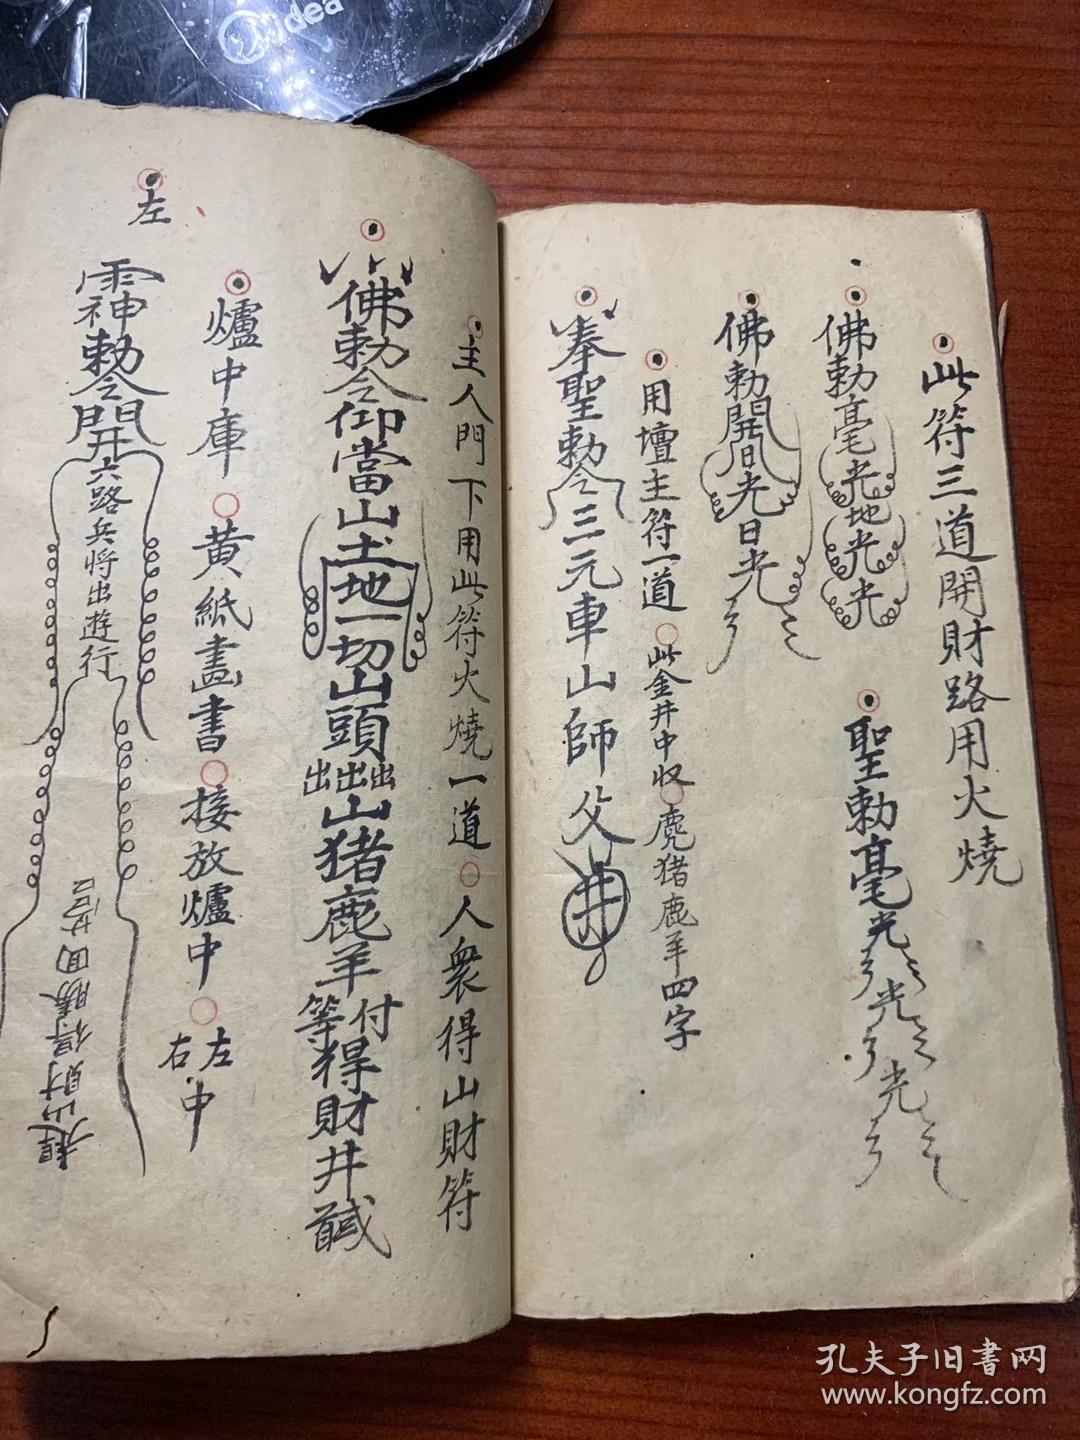 此符三道開財路用火燒
佛勅毫光地光光
聖勅毫光光光
佛勅開日光日光
用壇主符一道○此金井中収○麂猪鹿羊四字
奉聖勅令三元車山師父井
主人門下用此符火燒一道○人衆得山財符
佛勅令仰當山土地一切山頭出出出山猪鹿羊等付得財井
爐中庫○黄紙畫書○接放爐中○左右中
左
神勅令開六路兵将出遊行
山財得勝回营
idea
孔夫子旧書网
www.kongfz.com